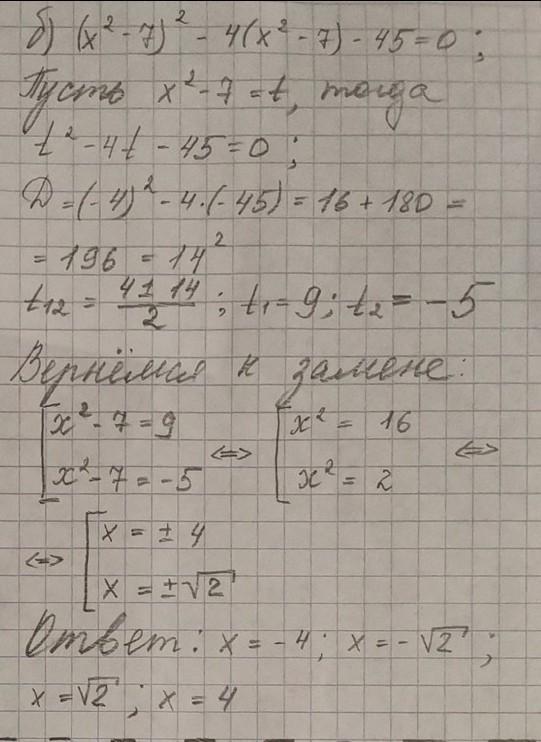 б) (x² - 7)² - 4(x² - 7) - 45 = 0 ;
Пусть x² - 7 = t, тогда
t² - 4t - 45 = 0 ;
D = (-4)² - 4·(-45) = 16 + 180 =
= 196 = 14²
t₁₂ = (4 ± 14)/2 ; t₁ = 9 ; t₂ = -5
Вернёмся к замене:
[ x² - 7 = 9 ; x² - 7 = -5 <=> [ x² = 16 ; x² = 2 <=>
<=> [ x = ± 4 ; x = ±√2
Ответ: x = -4 ; x = -√2 ;
x = √2 ; x = 4